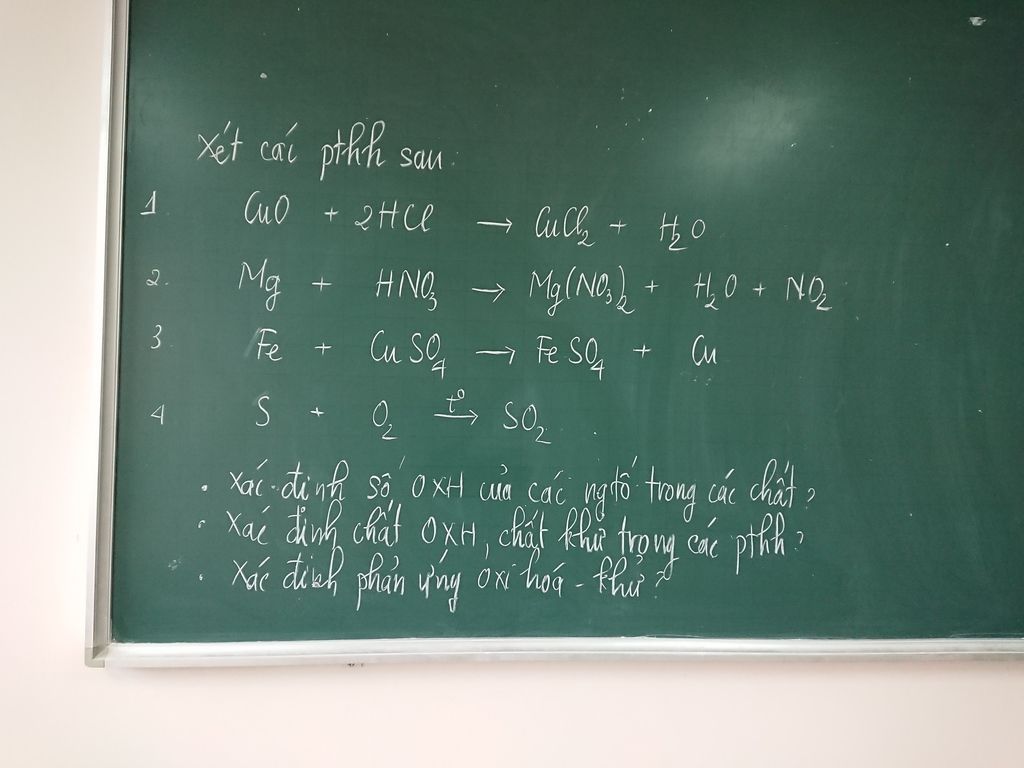 Xét các pthh sau:
1. CuO + 2HCl → CuCl₂ + H₂O
2. Mg + HNO₃ → Mg(NO₃)₂ + H₂O + NO₂
3 Fe + CuSO₄ → FeSO₄ + Cu
4 S + O₂ t° → SO₂
. Xác định số OXH của các ngtố trong các chất?
. Xác định chất OXH, chất khử trong các pthh?
. Xác định phản ứng oxi hoá - khử?